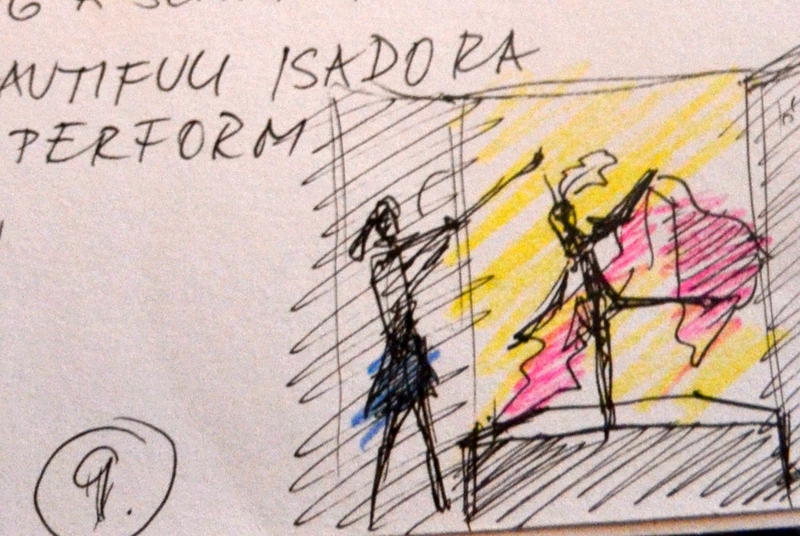 AUTIFULL ISADORA
PERFORM
9.